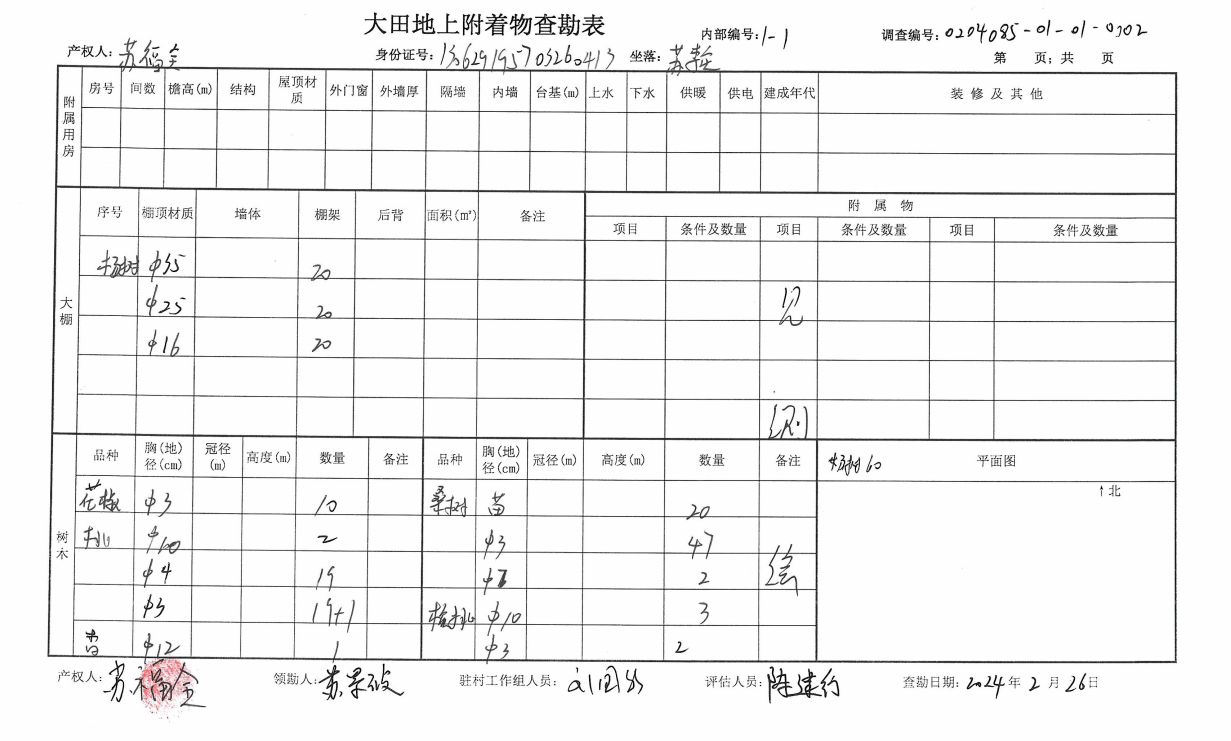 大田地上附着物查勘表
内部编号:1-1
调查编号:0204085-01-01-0302
产权人:苏福全
身份证号:
坐落:苏
第 页;共 页
附属用房
房号 间数 檐高(m) 结构 屋顶材质 外门窗 外墙厚 隔墙 内墙 台基(m) 上水 下水 供暖 供电 建成年代 装修及其他
大棚
序号 棚顶材质 墙体 棚架 后背 面积(㎡) 备注 附属物
项目 条件及数量 项目 条件及数量 项目 条件及数量
杨树 φ35 20
φ25 20
φ16 20
树木
品种 胸(地)径(cm) 冠径(m) 高度(m) 数量 备注 品种 胸(地)径(cm) 冠径(m) 高度(m) 数量 备注 杨树60 平面图
↑北
花椒 φ3 10 桑树 苗 20
桃 φ10 2 φ3 47
φ4 19 2
φ3 19+1 核桃 φ10 3
杏 φ12 1 φ3 2
产权人:苏福全
领勘人:苏
驻村工作组人员:
评估人员:陈建行
查勘日期:2024年2月26日